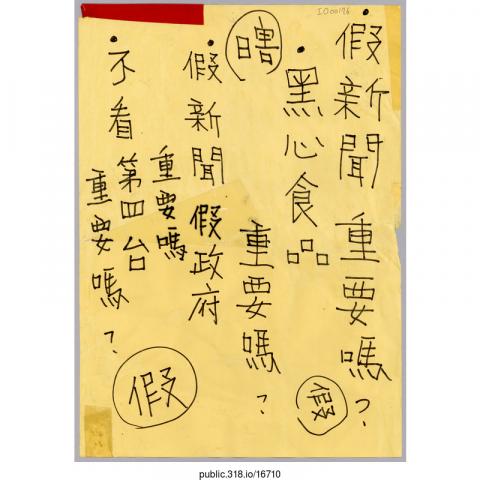 IO00196
假新聞 重要嗎?
假
黑心食品 重要嗎?
瞎
假新聞 假政府
重要嗎
不看第四台
重要嗎?
假
public.318.io/16710